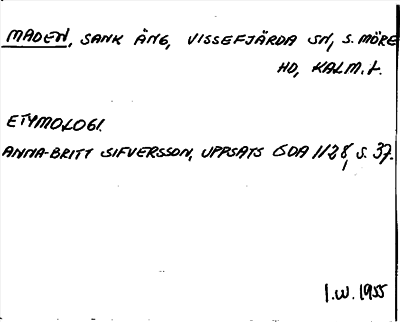 MADEN, SANK ÄNG, VISSEFJÄRDA SN, S. MÖRE
HD, KALM. L.
ETYMOLOGI.
ANNA-BRITT SIFVERSSON, UPPSATS GDA 1128, S. 37.
I.W. 1955